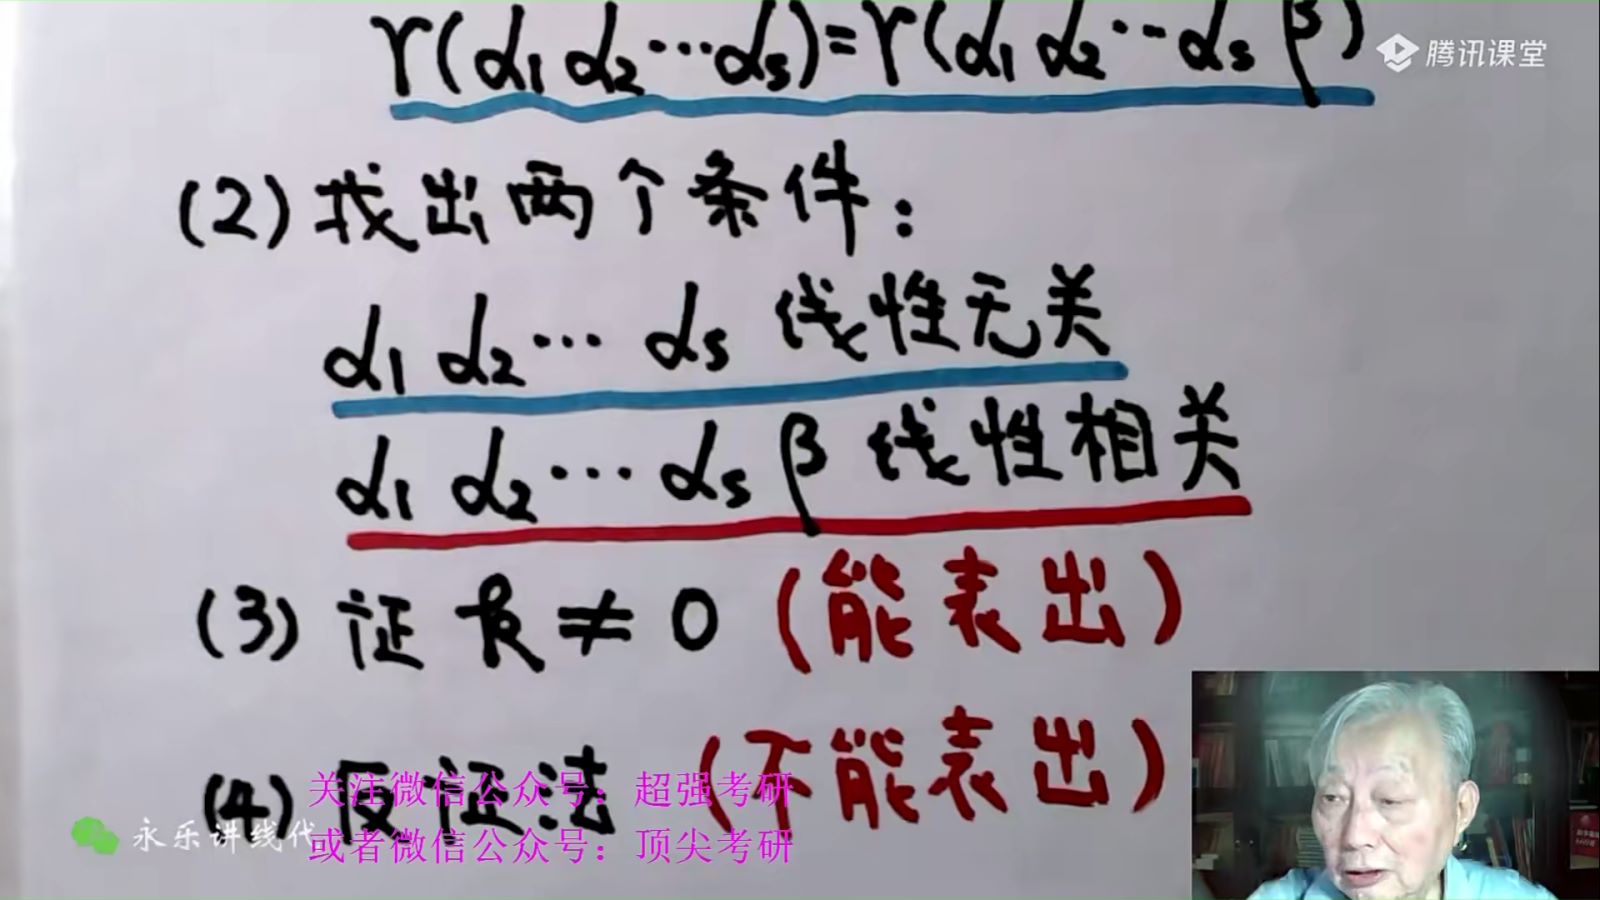 r(α₁ α₂ ⋯ αₛ)=r(α₁ α₂ ⋯ αₛ β)
腾讯课堂
(2) 找出两个条件：
α₁ α₂ ⋯ αₛ 线性无关
α₁ α₂ ⋯ αₛ β 线性相关
(3) 证 k ≠ 0 (能表出)
(4) 反证法 (不能表出)
关注微信公众号：超强考研
永乐讲线代
或者微信公众号：顶尖考研